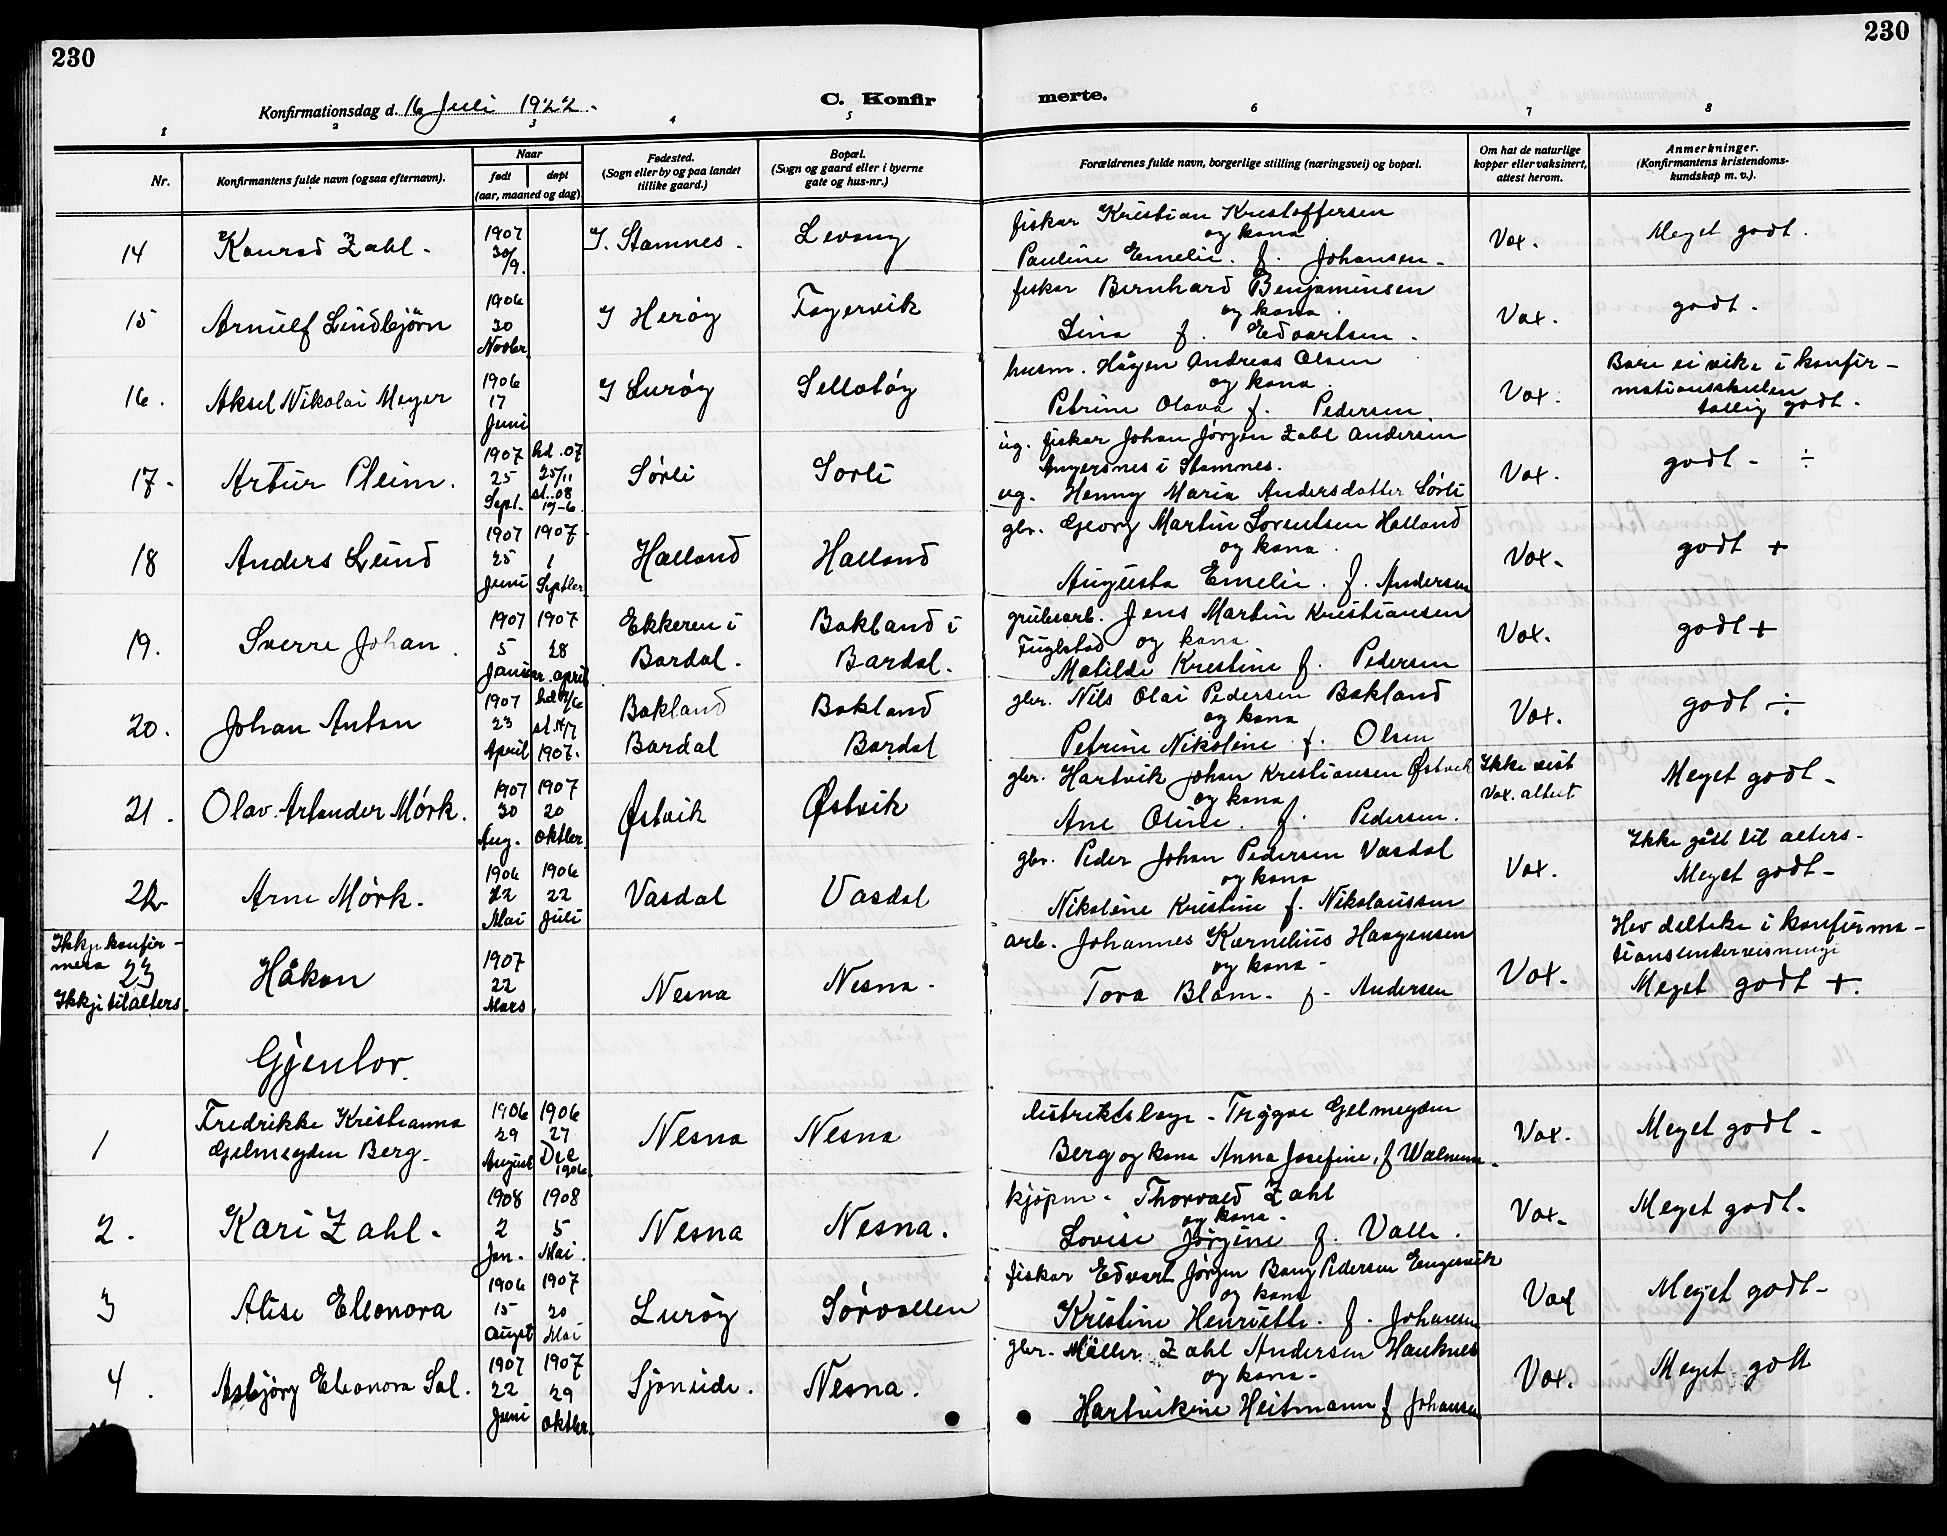 230
230
Konfirmationsdag d. 16 Juli 1922.
C. Konfirmerte.
1 2 3 4 5 6 7 8
Nr.
Konfirmantens fulde navn (ogsaa efternavn).
Naar
født
døpt
(aar, maaned og dag)
Fødested.
(Sogn eller by og paa landet
tillike gaard.)
Bopæl.
(Sogn og gaard eller i byerne
gate og hus-nr.)
Forældrenes fulde navn, borgerlige stilling (næringsvei) og bopæl.
Om hat de naturlige
kopper eller vaksinert,
attest herom.
Anmerkninger.
(Konfirmantens kristendoms-
kundskap m. v.).
14 Konrad Zahl. 1907 30/9. I. Stamnes. Levang
fiskar Kristian Kristoffersen
og kona
Pauline Emelie. f. Johansen.
Vax. Meget godt.
15 Arnulf Lindbjörn 1906 30 Novbr. I Herøy Fagervik
fiskar Bernhard Benjaminsen
og kona
Lina f. Edvartsen.
Vax. godt.
16. Aksel Nikolai Meyer 1906 17 Juni I Lurøy
husm. Hågen Andreas Olsen
og kona
Petrine Olava f. Pedersen.
Vax. Bare ei vike i konfir-
mationsskulen
godt.
17. Artur Pleim. 1907 25 Sept. hd. 07 25/11 st. 08 Sørli Sorli
ug. fiskar Johan Jörgen Zahl Andersen
i Stamnes.
ug. Henny Maria Andersdatter Sörli
Vax. godt - ÷
18 Anders Lund 1907 25 Juni 1907 1 Septbr. Halland Halland
gbr. Georg Martin Lorentsen Halland
og kona
Augusta Emelie. f. Andersen
Vax. godt +
19. Sverre Johan. 1907 5 Januar 1907 28 april Ekkeren i Bardal. Bakland i Bardal.
grubearb. Jens Martin Kristiansen
Fuglstad og kona
Matilde Kristine f. Pedersen
Vax. godt +
20. Johan Anton 1907 23 April 1907. Bakland Bardal Bakland Bardal
gbr. Nils Olai Pedersen Bakland
og kona
Petrine Nikoline f. Olsen
Vax. godt ÷
21. Olav Arlander Mörk. 1907 30 Aug. 1907 20 oktber. Østvik Østvik
gbr. Hartvik Johan Kristiansen Østvik
og kona
Ane Oline. f. Pedersen.
Ikke vist
Vax. attest
Meget godt -
22 Arne Mörk. 1906 22 Mai 1906 22 Juli Vasdal Vasdal
gbr. Peder Johan Pedersen Vasdal
og kona
Nikoline Kristine f. Nikolaissen
Vax. Ikke gått til alters -
Meget godt -
Ikkje konfir-
mera 23
Ikkje til alters.
Håkon 1907 22 Mars Nesna Nesna.
arb. Johannes Kornelius Haagensen
og kona -
Tora Blom. f. Andersen
Vax. Hev delteke i konfirma-
tionsundervisningi
Meget godt +.
Gjentor.
1 Fredrikke Kristianna
Gelmeyden Berg. 1906 29 August 1906 27 Dec 1906 Nesna Nesna
distriktslege - Trygve Gelmeyden
Berg og kona Anna Josefine, f
Vax. Meget godt -
2. Kari Zahl. 1908 2 Jan. 1908 5 Mai. Nesna Nesna.
kjöpm. Thorvald Zahl
og kona.
Lovise Jörgine f. Valla.
Vax. Meget godt.
3 Alise Eleonora 1906 15 august 1907 20 Mai Lurøy Sørvollen
fiskar Edvart Jörgen Bang Pedersen Engesvik
og kona
Kristine Henriette. f. Johansen
Vax Meget godt -
4. Asbjörg Eleonora Sal. 1907 22 Juni 1907 29 oktber. Sjoneide. Nesna.
gbr. Möller Zahl Andersen Hauknes
og kona.
Hartvikine Heitmann f Johansen
Vax. Meget godt